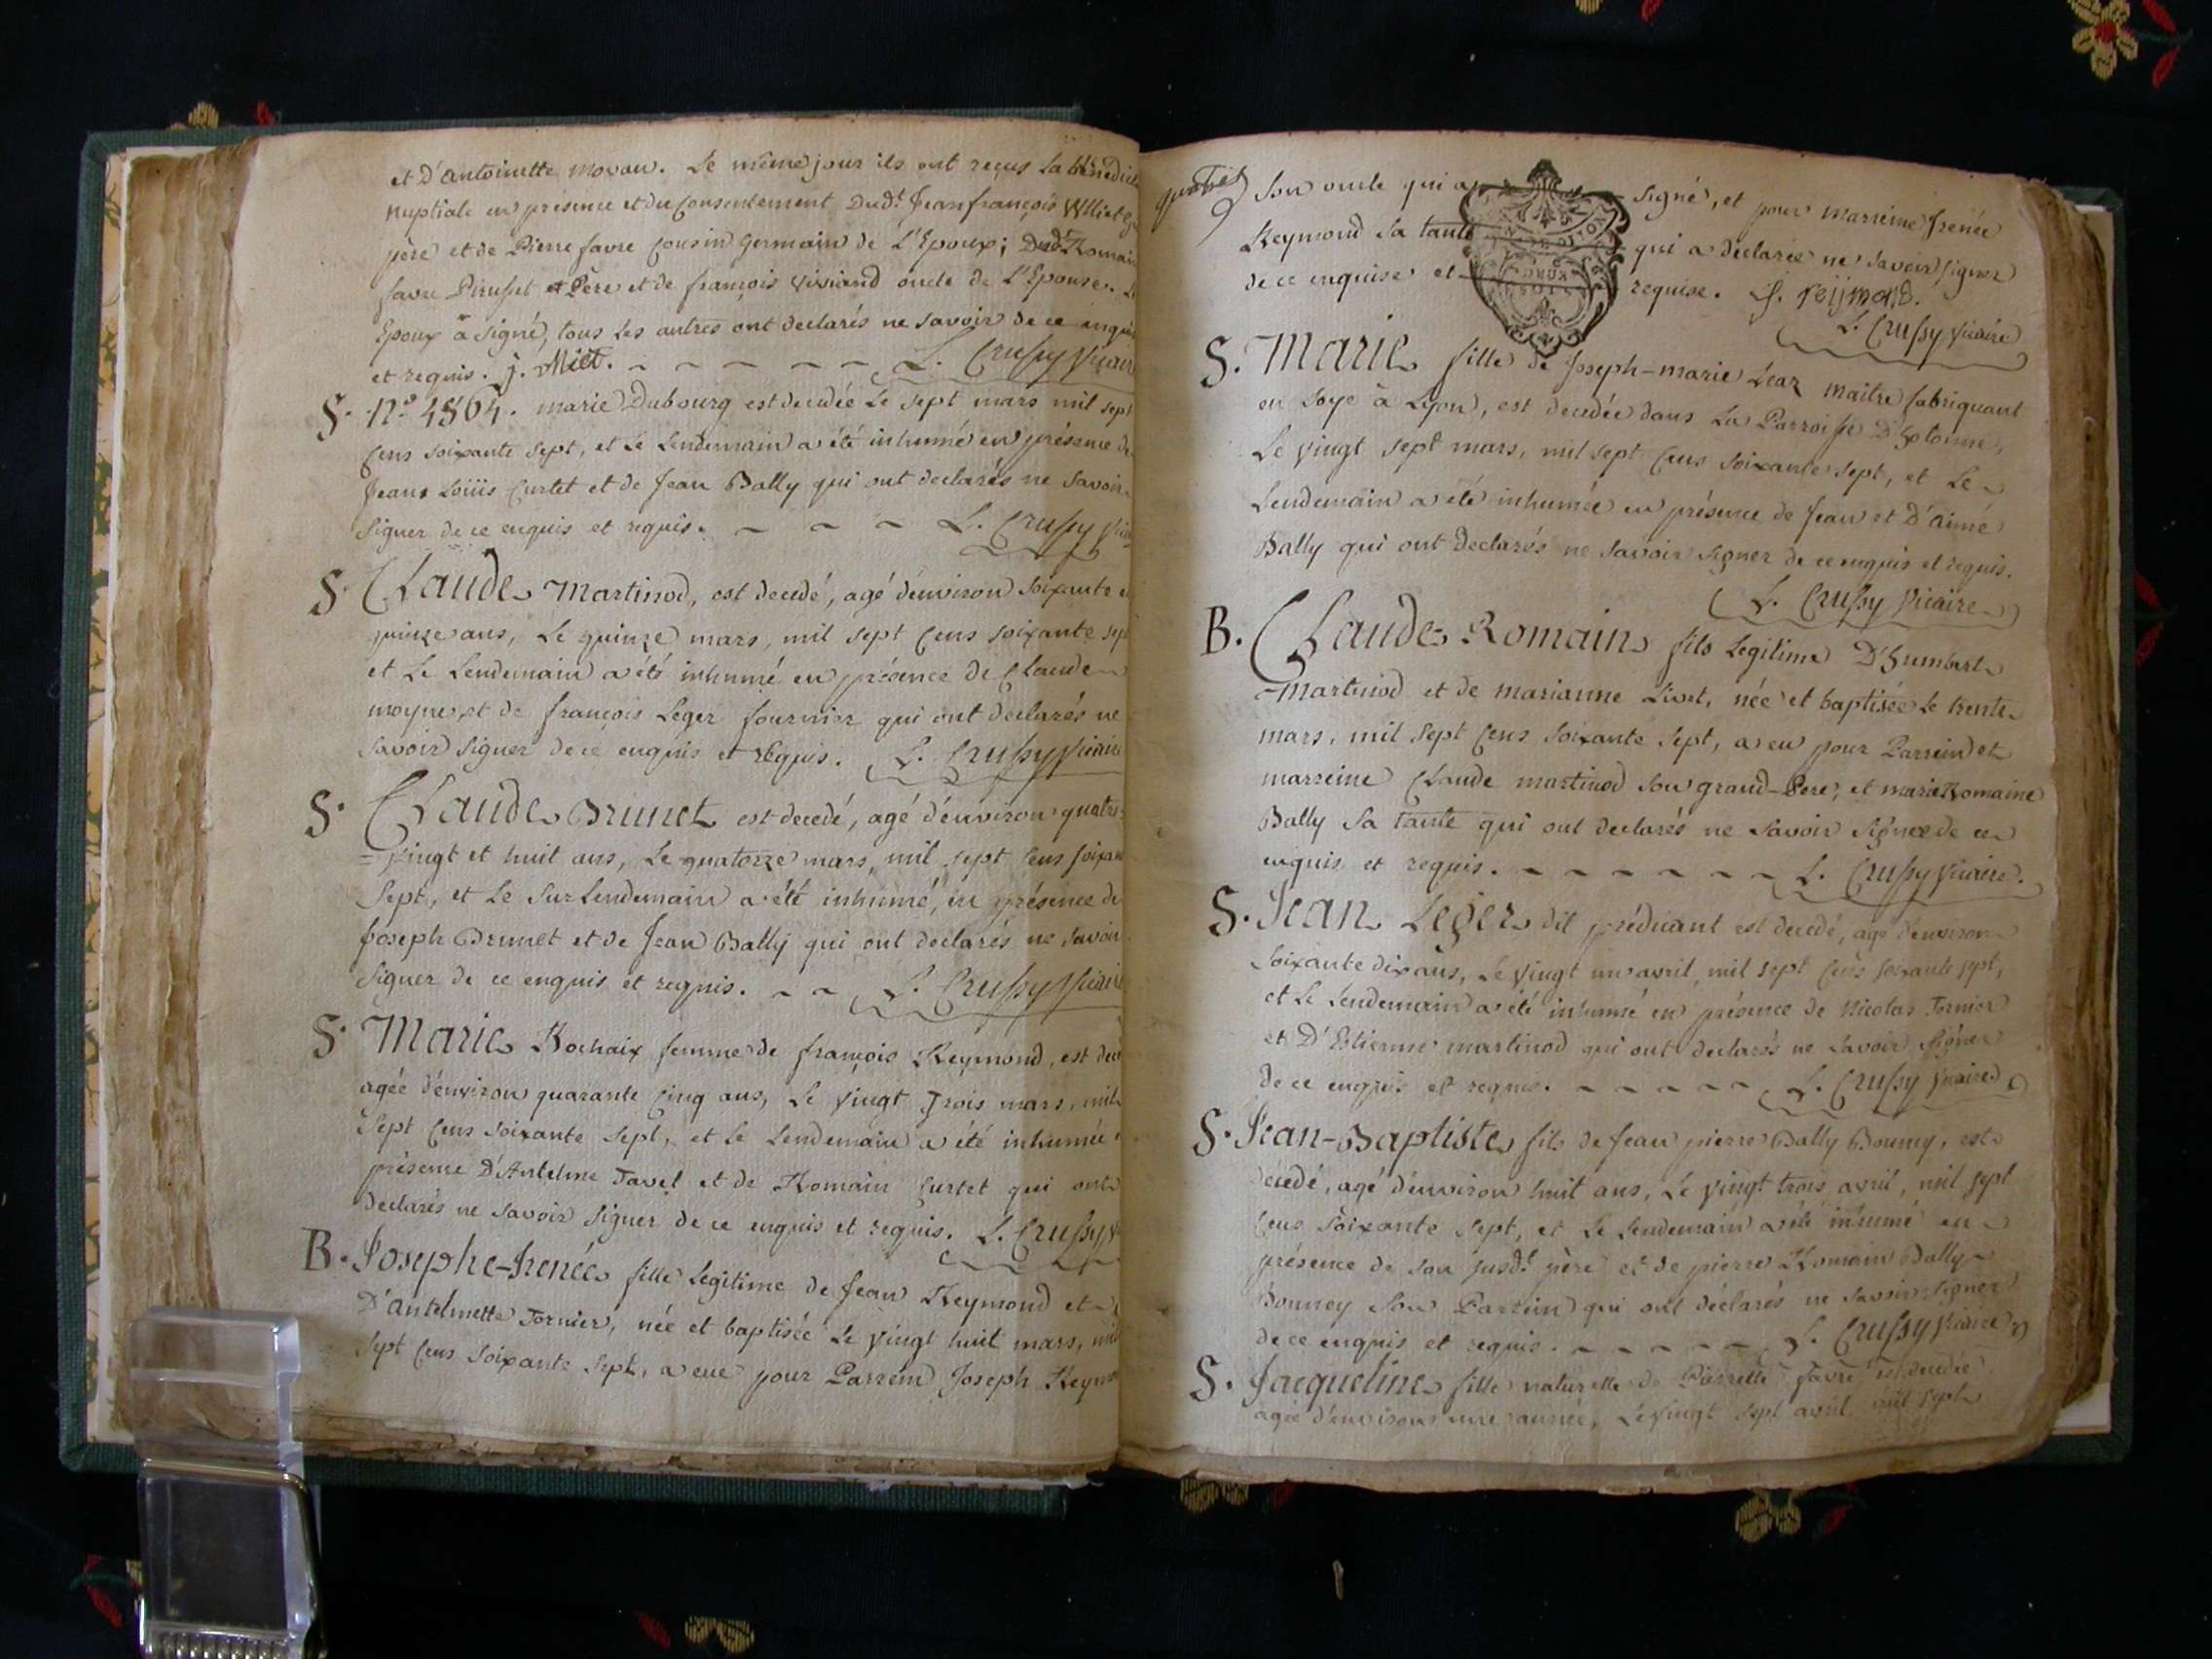 et D'antoinette movau. Le même jour ils ont reçus la bénédict
Nuptiale en présence et du Consentement Dud.t Jean françois
père et de Pierre favre Cousin Germain de L'Epoux; Dud.t Romain
favre et Père et de françois viviand oncle de L'Epouse.
Epoux a signé, tous les autres ont declarés ne savoir de ce enquis
et requis. j. Miet. L. Crussy Vicaire
S. N.o 4864. marie Dubourg est decedée Le sept mars mil sept
Cens soixante sept, et Le Lendemain a été inhumé en présence de
Jean Loüis Curtet et de Jean Bally qui ont declarés ne savoir
signer de ce enquis et requis. L. Crussy
S. Claude Martinod, est decedé, agé d'environ soixante et
quinze ans, Le quinze mars, mil sept Cens soixante sept
et Le Lendemain a été inhumé en présence de Claude
moyne, et de françois Leger fournier qui ont declarés ne
savoir signer de ce enquis et requis. L. Crussy Vicaire
S. Claude Brunet est decedé, agé d'environ quatre=
=vingt et huit ans, Le quatorze mars, mil sept Cens soixan
sept, et Le Surlendemain a été inhumé, en présence de
Joseph Brunet et de Jean Bally qui ont declarés ne savoir
signer de ce enquis et requis. L. Crussy Vicaire
S. Marie Rochaix femme de françois Reymond, est dec
agée d'environ quarante Cinq ans, Le Vingt Trois mars, mil
Sept Cens soixante sept, et Le Lendemain a été inhumée
présence D'Antelme Tavel et de Romain Curtet qui ont
declarés ne savoir signer de ce enquis et requis. L. Crussy
B. Josephe-Irenée fille Legitime de Jean Reymond et
D'antelmette Tornier, née et baptisée Le Vingt huit mars, mil
sept Cens soixante sept, a eue pour Parrein Joseph Reymon
son oncle qui a signé, et pour marreine Irenée
Reymond sa tante qui a declarée ne savoir signer
de ce enquise et requise. J. reijmond.
L. Crussy Vicaire
S. Marie fille de Joseph-marie Lear maitre fabriquant
en soye à Lyon, est decedée dans La Parroisse
Le Vingt sept mars, mil sept Cens soixante sept, et Le
Lendemain a été inhumée en présence de Jean et D'aimé
Bally qui ont declarés ne savoir signer de ce enquis et requis.
L. Crussy Vicaire
B. Claude-Romain fils Legitime D'humbert
Martinod et de marianne Livet, née et baptisée Le trente
mars, mil sept Cens soixante sept, a eu pour Parrein et
marreine Claude martinod son grand-Pere, et marie Romaine
Bally sa tante qui ont declarés ne savoir signer de ce
enquis et requis. L. Crussy Vicaire.
S. Jean Leger dit prédicant est decedé, agé d'environ
soixante dix ans, Le Vingt un avril, mil sept Cens soixante sept,
et Le Lendemain a été inhumé en présence de Nicolas Tornier
et D'Etienne martinod qui ont declarés ne savoir signer
de ce enquis et requis. L. Crussy Vicaire
S. Jean-Baptiste fils de Jean pierre Bally Bouney, est
decedé, agé d'environ huit ans, Le Vingt trois avril, mil sept
Cens soixante sept, et Le Lendemain a été inhumé en
présence de son susd.t père et de pierre Romain Bally
Bouney son Parrein qui ont déclarés ne savoir signer
de ce enquis et requis. L. Crussy Vicaire
S. Jacqueline fille naturelle de Pierrette favre est decedée
agée d'environ une année, Le Vingt sept avril mil sept